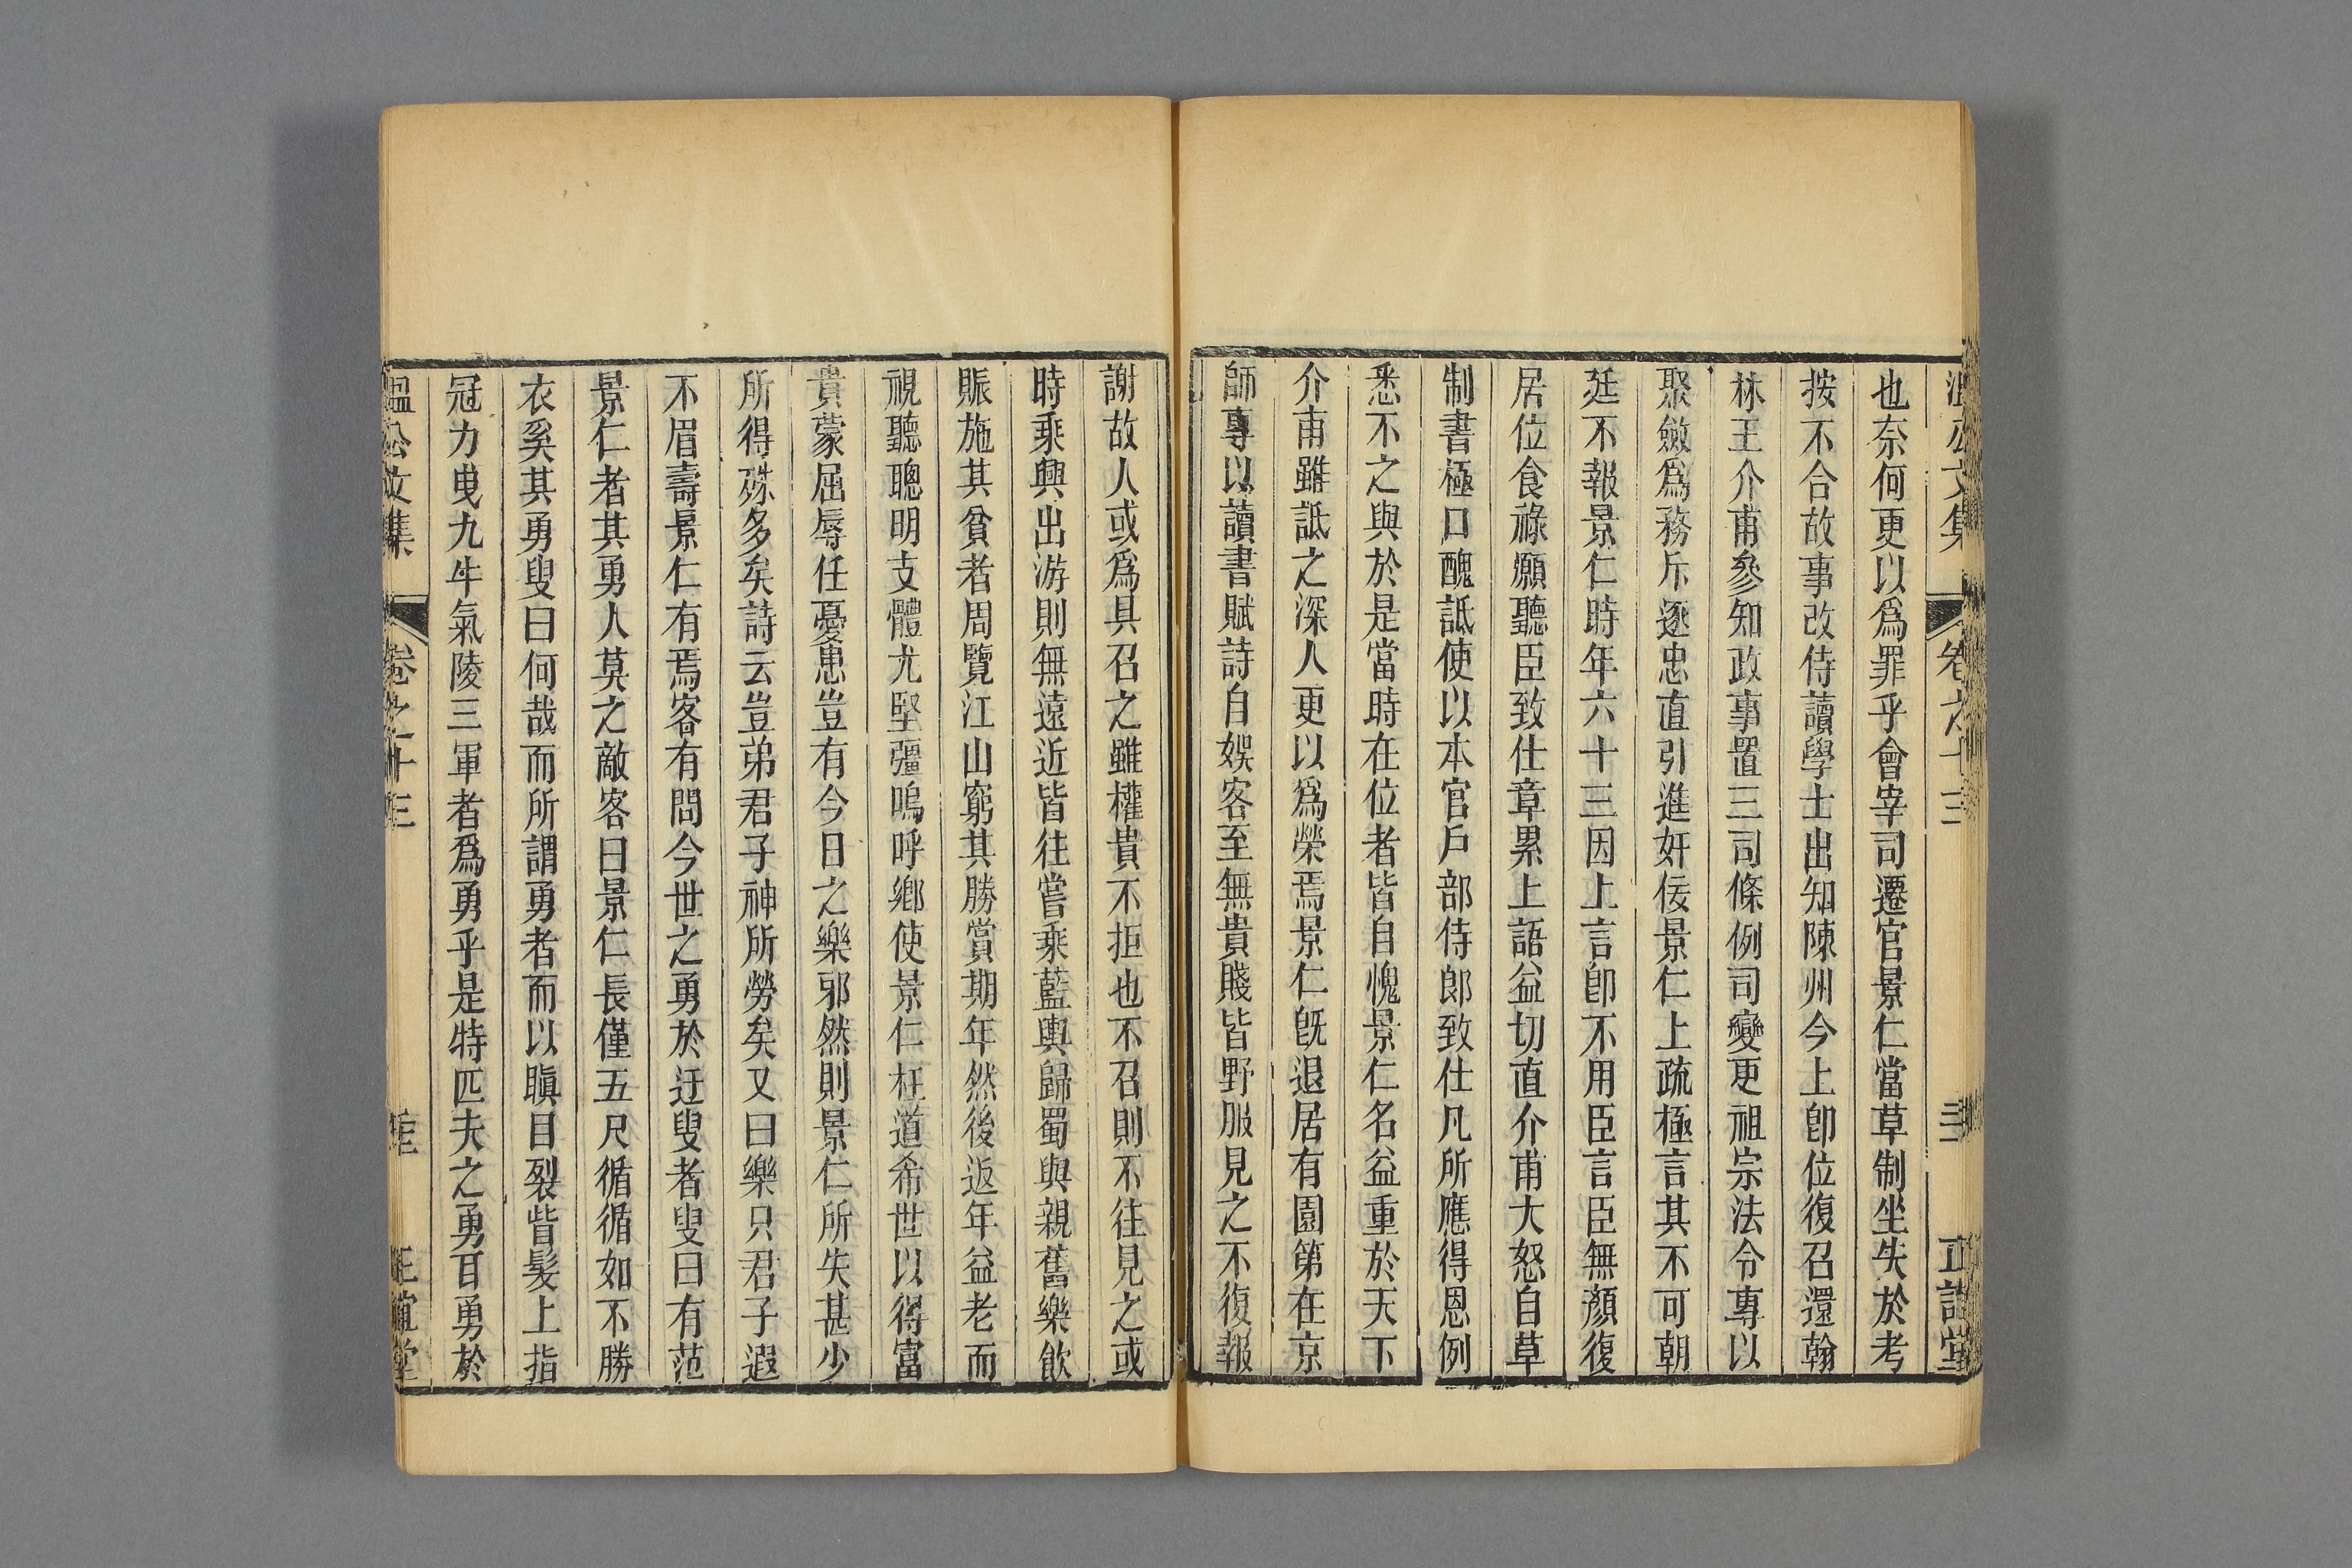 溫公文集 卷之十三 正誼堂
也奈何更以爲罪乎會宰司遷官景仁當草制坐失於考
按不合故事改侍讀學士出知陳州今上卽位復召還翰
林王介甫參知政事置三司條例司變更祖宗法令專以
聚斂爲務斥逐忠直引進奸佞景仁上疏極言其不可朝
廷不報景仁時年六十三因上言卽不用臣言臣無顏復
居位食祿願聽臣致仕章累上語益切直介甫大怒自草
制書極口醜詆使以本官戶部侍郎致仕凡所應得恩例
悉不之與於是當時在位者皆自愧景仁名益重於天下
介甫雖詆之深人更以爲榮焉景仁旣退居有園第在京
師專以讀書賦詩自娛客至無貴賤皆野服見之不復報
謝故人或爲具召之雖權貴不拒也不召則不往見之或
時乘興出游則無遠近皆往嘗乘藍輿歸蜀與親舊樂飲
賑施其貧者周覽江山窮其勝賞期年然後返年益老而
視聽聰明支體尤堅彊嗚呼鄉使景仁枉道希世以得富
貴蒙屈辱任憂患豈有今日之樂邪然則景仁所失甚少
所得殊多矣詩云豈弟君子神所勞矣又曰樂只君子遐
不眉壽景仁有焉客有問今世之勇於迂叟者叟曰有范
景仁者其勇人莫之敵客曰景仁長僅五尺循循如不勝
衣奚其勇叟曰何哉而所謂勇者而以瞋目裂眥髮上指
冠力曳九牛氣陵三軍者爲勇乎是特匹夫之勇耳勇於
溫公文集 卷之十三 正誼堂